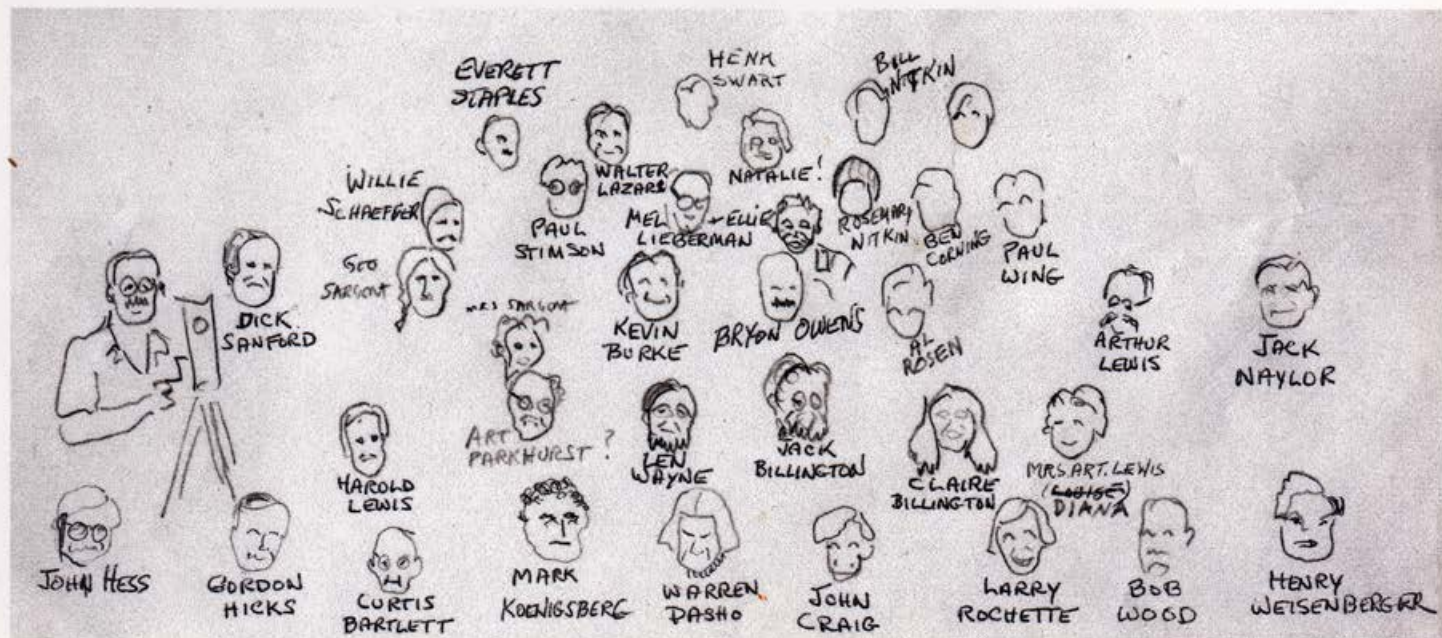 EVERETT
STAPLES
HENK
SWART
BILL
NITKIN
WALTER
LAZARE
NATALIE!
WILLIE
SCHAEFFER
PAUL
STIMSON
MEL + ELLIE
LIEBERMAN
ROSEMARY
NITKIN
BEN
CORNING
PAUL
WING
GEO
SARGENT
DICK
SANFORD
MRS SARGENT
KEVIN
BURKE
BRYON OWENS
AL
ROSEN
ARTHUR
LEWIS
JACK
NAYLOR
ART
PARKHURST ?
LEN
WAYNE
JACK
BILLINGTON
CLAIRE
BILLINGTON
MRS. ART. LEWIS
(LOUISE)
DIANA
HAROLD
LEWIS
JOHN HESS
GORDON
HICKS
CURTIS
BARTLETT
MARK
KOENIGSBERG
WARREN
DASHO
JOHN
CRAIG
LARRY
ROCHETTE
BOB
WOOD
HENRY
WEISENBERGER